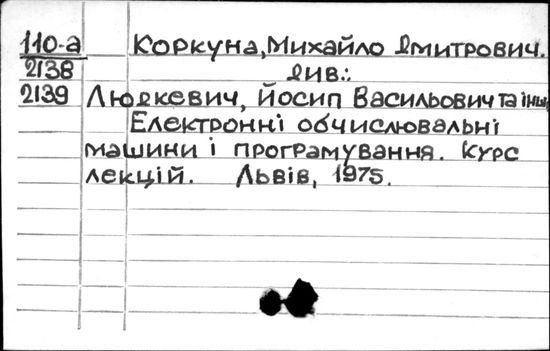 110-а Коркуна, Михайло Дмитрович.
2138 Див.:
2139 Людкевич, Йосип Васильович та інш.
Електронні обчислювальні
машини і програмування. Курс
лекцій. Львів, 1975.